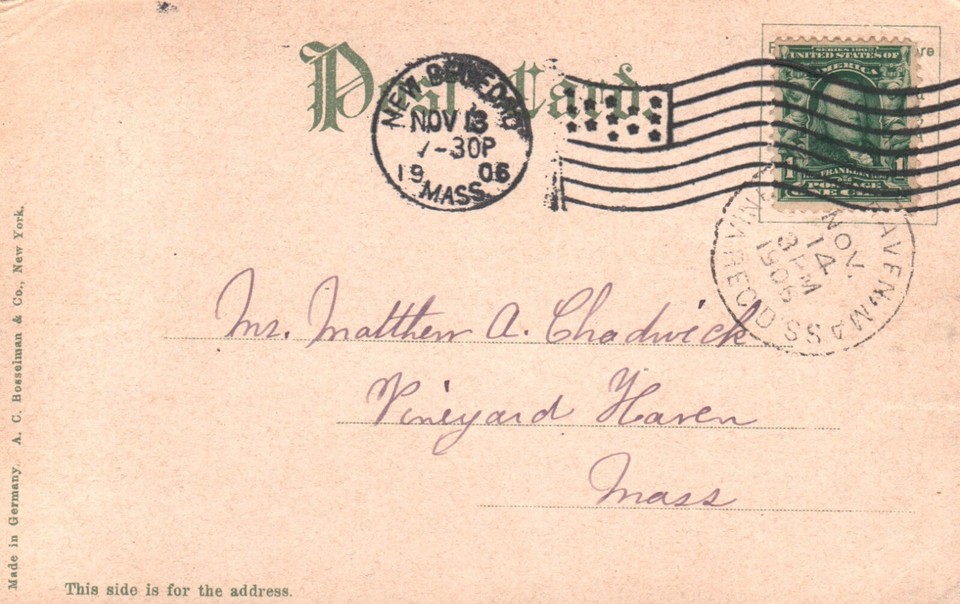 Post Card
NEW BEDFORD
NOV 13
7-30P
19 06
MASS.
SERIES 1902
UNITED STATES OF
AMERICA
FRANKLIN
1 1
POSTAGE
ONE CENT
VINEYARD HAVEN, MASS
NOV
14
3 PM
1906
REC'D
Mr. Matthew A. Chadwick
Vineyard Haven
Mass
Made in Germany. A. C. Bosselman & Co., New York.
This side is for the address.